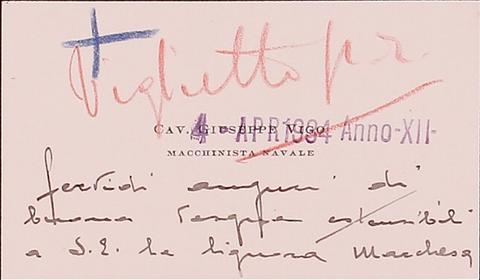 Viglietto p.r.
CAV. GIUSEPPE VIGO
4 - APR 1934 Anno-XII-
MACCHINISTA NAVALE
fervidi auguri di
buona Pasqua estensibili
a S.E. la Signora Marchesa